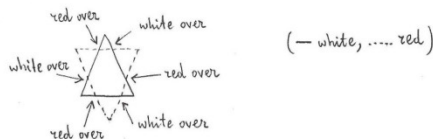 red over
white over
white over
red over
red over
white over
(— white, ..... red)